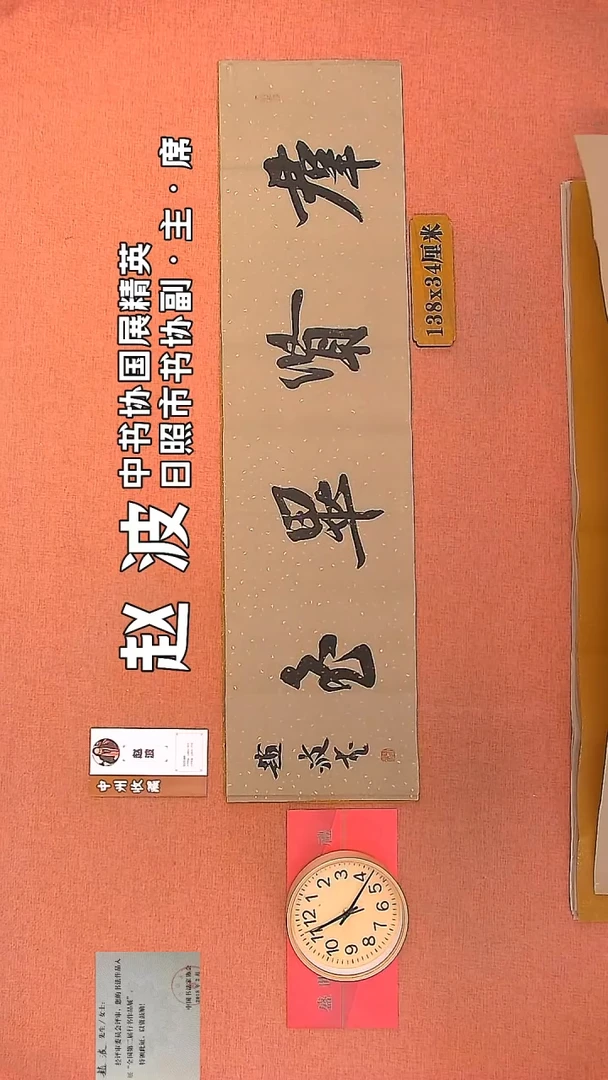 赵波
中书协国展精英
日照市书协副·主·席
群賢畢至
趙波書
138x34厘米
中州收藏
赵波
赵波 先生/女士:
经评审委员会评审,您的书法作品入
展“全国第二届行书作品展”,
特颁此证,以资鼓励!
中国书法家协会
12
1
2
3
4
5
6
7
8
9
10
11